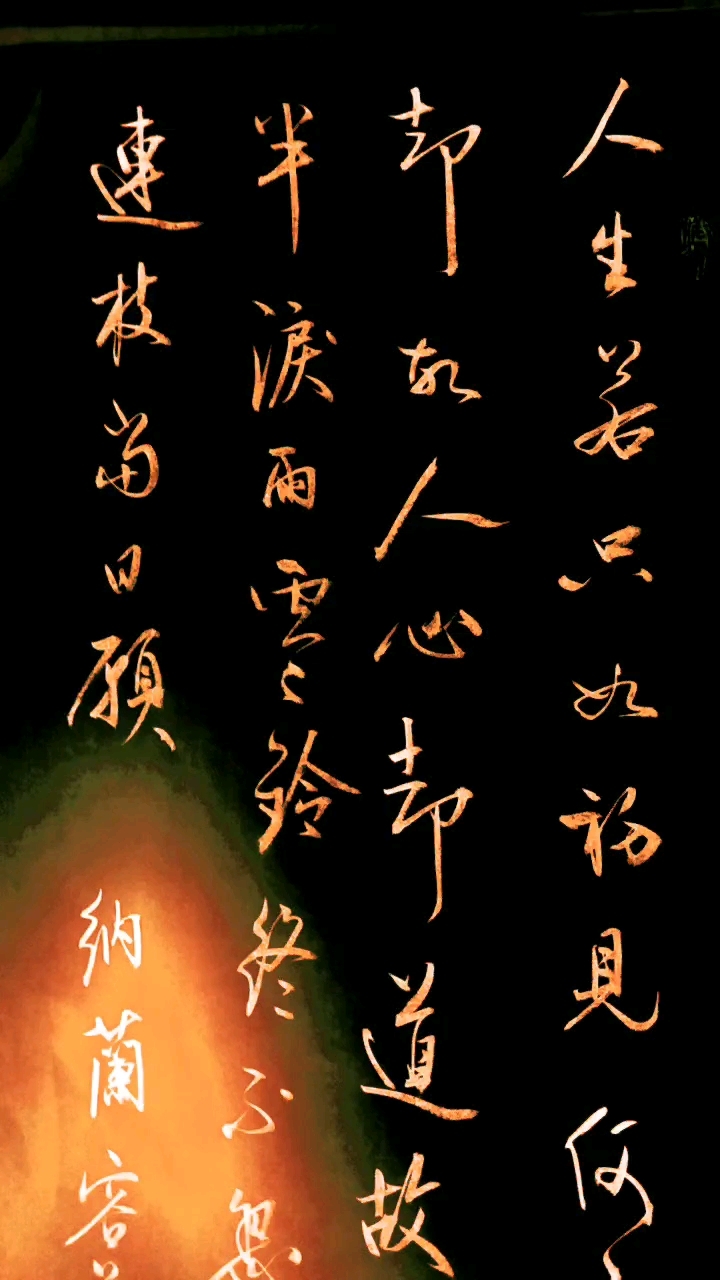 人生若只如初見何
却故人心却道故
半淚雨零鈴終不怨
連枝當日願 納蘭容